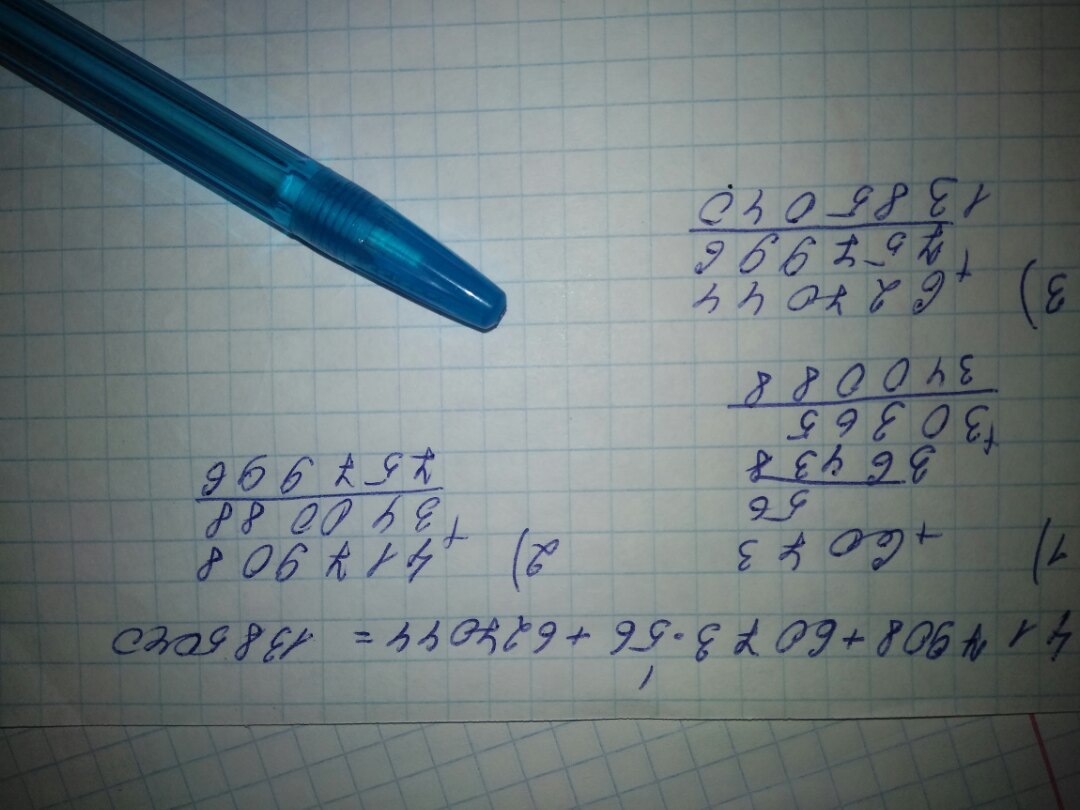 1
417908+6073·56+627044= 1385040
1) +6073
56
36438
+30365
340088
2) 417908
+340088
757996
3) 627044
+757996
1385040